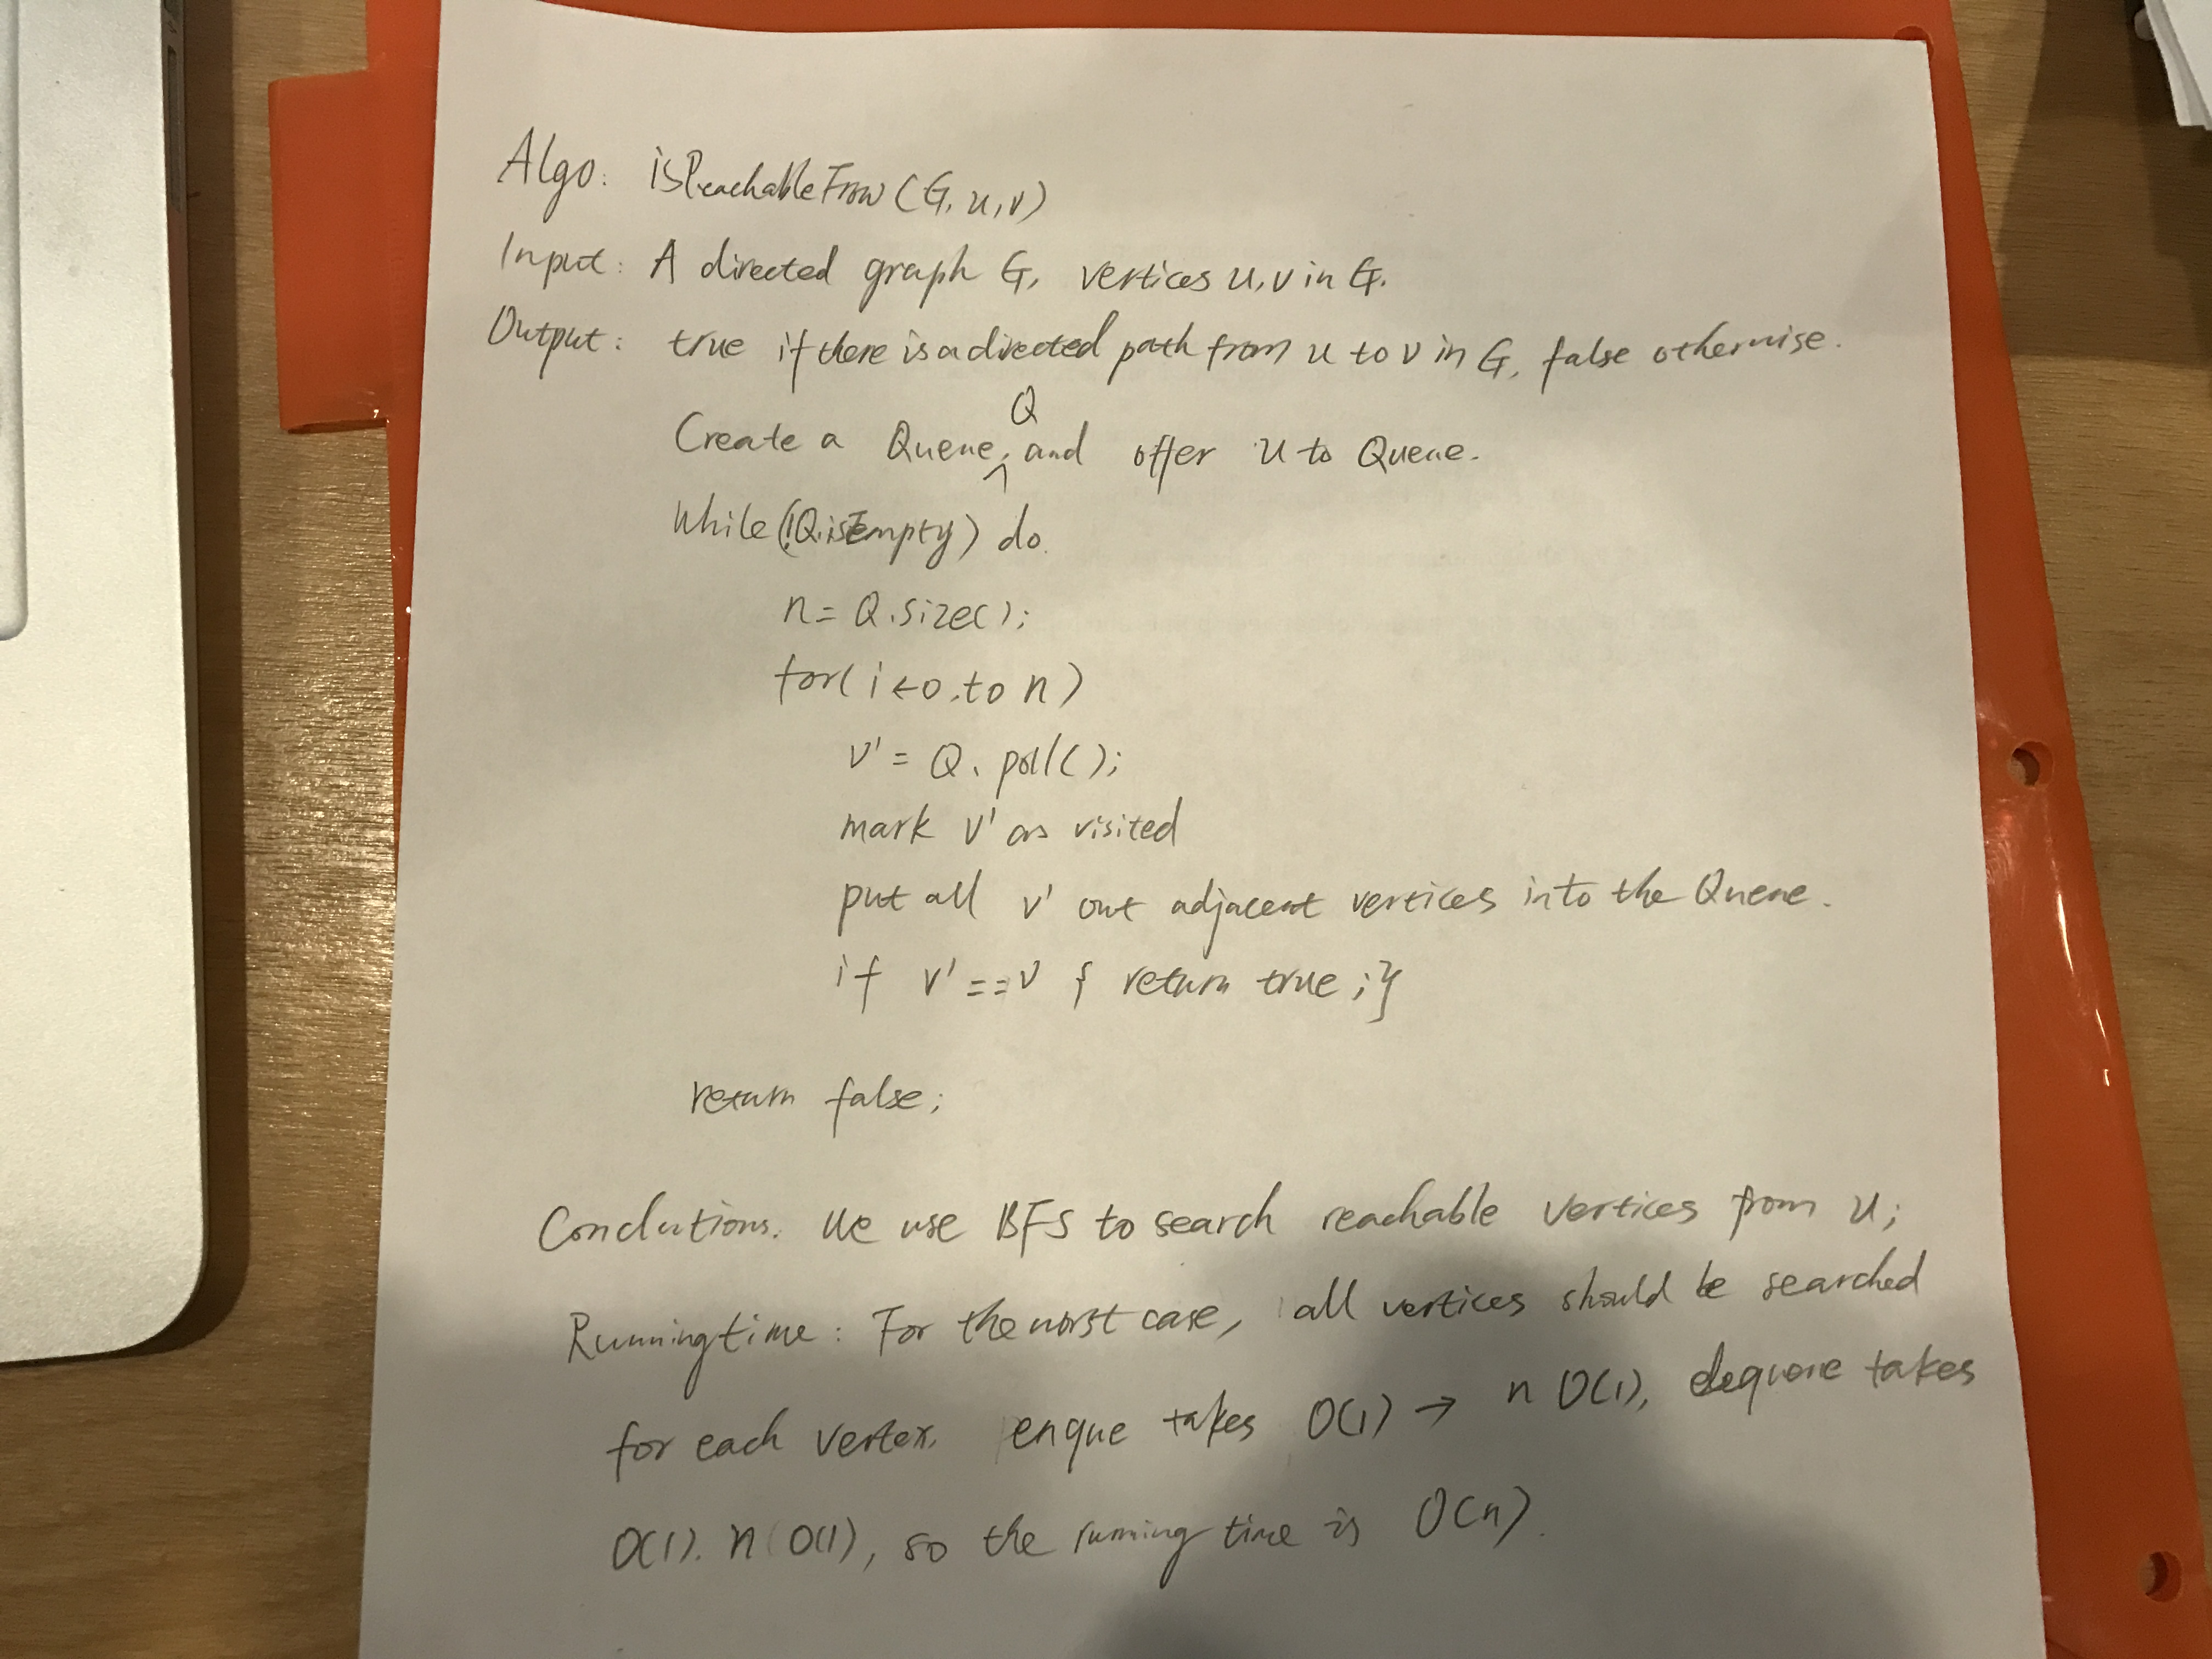 Algo: isReachableFrom(G, u, v)
Input: A directed graph G, vertices u, v in G.
Output: true if there is a directed path from u to v in G, false otherwise.
Create a Queue, Q and offer u to Queue.
while(!Q.isEmpty) do.
n = Q.size();
for(i←0. to n)
v' = Q. poll();
mark v' as visited
put all v' out adjacent vertices into the Queue.
if v' == v { return true;}
return false;
Conclutions. We use BFS to search reachable vertices from u;
Runningtime: For the worst case, all vertices should be searched
for each vertex, enque takes O(1) → n O(1), dequeue takes
O(1). n(O(1), so the running time is O(n).